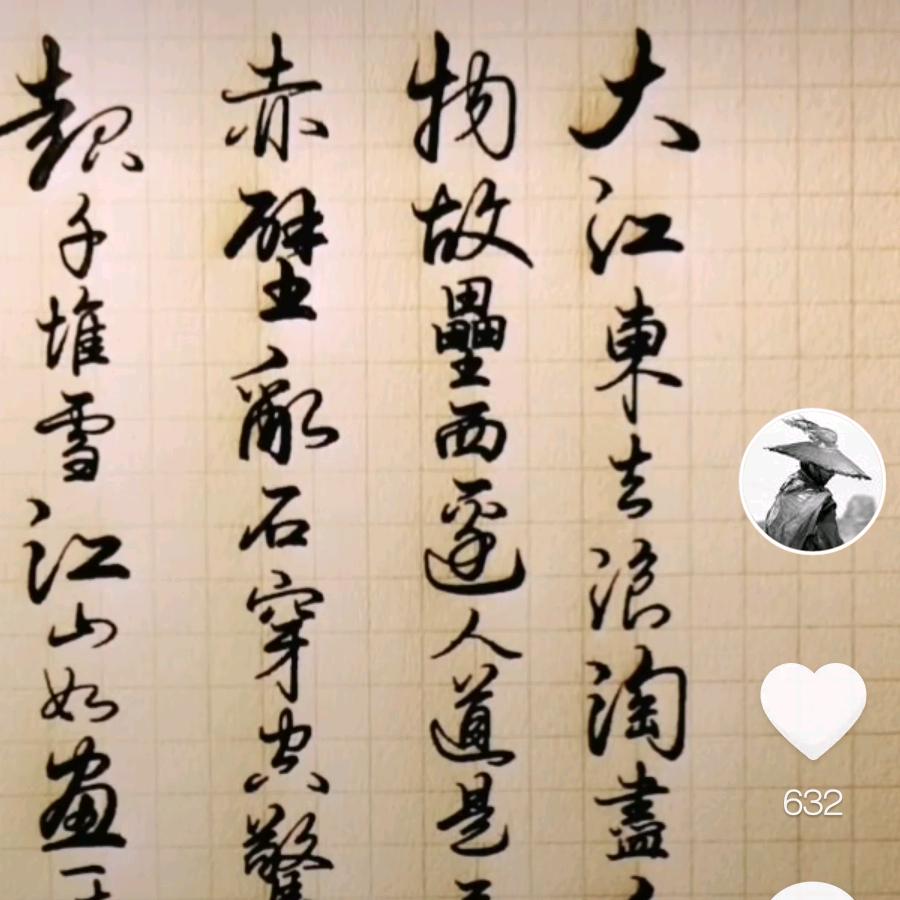 大江東去浪淘盡
物故壘西邊人道是
赤壁亂石穿空驚
起千堆雪江山如畫一
632